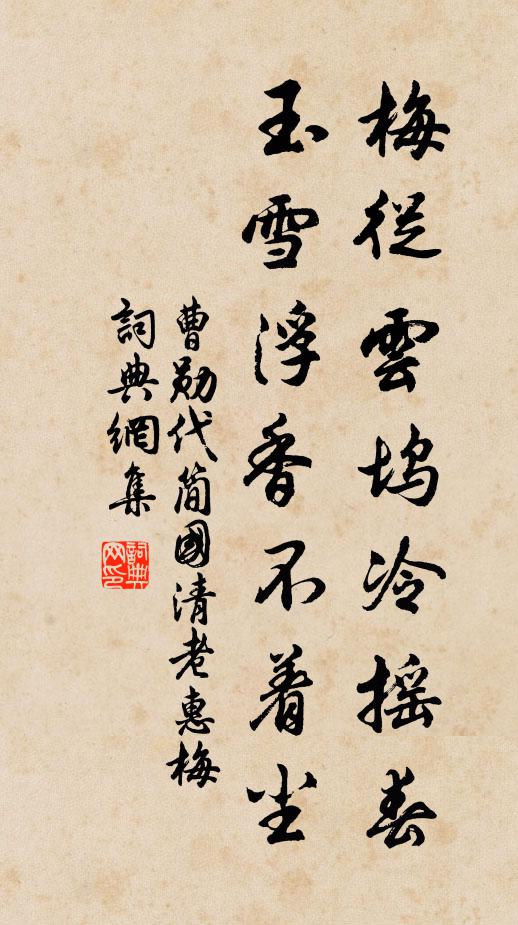 梅從雲塢冷摇春
玉雪浮香不着尘
曹勋代简國清老惠梅
詞典網集
詞典网印